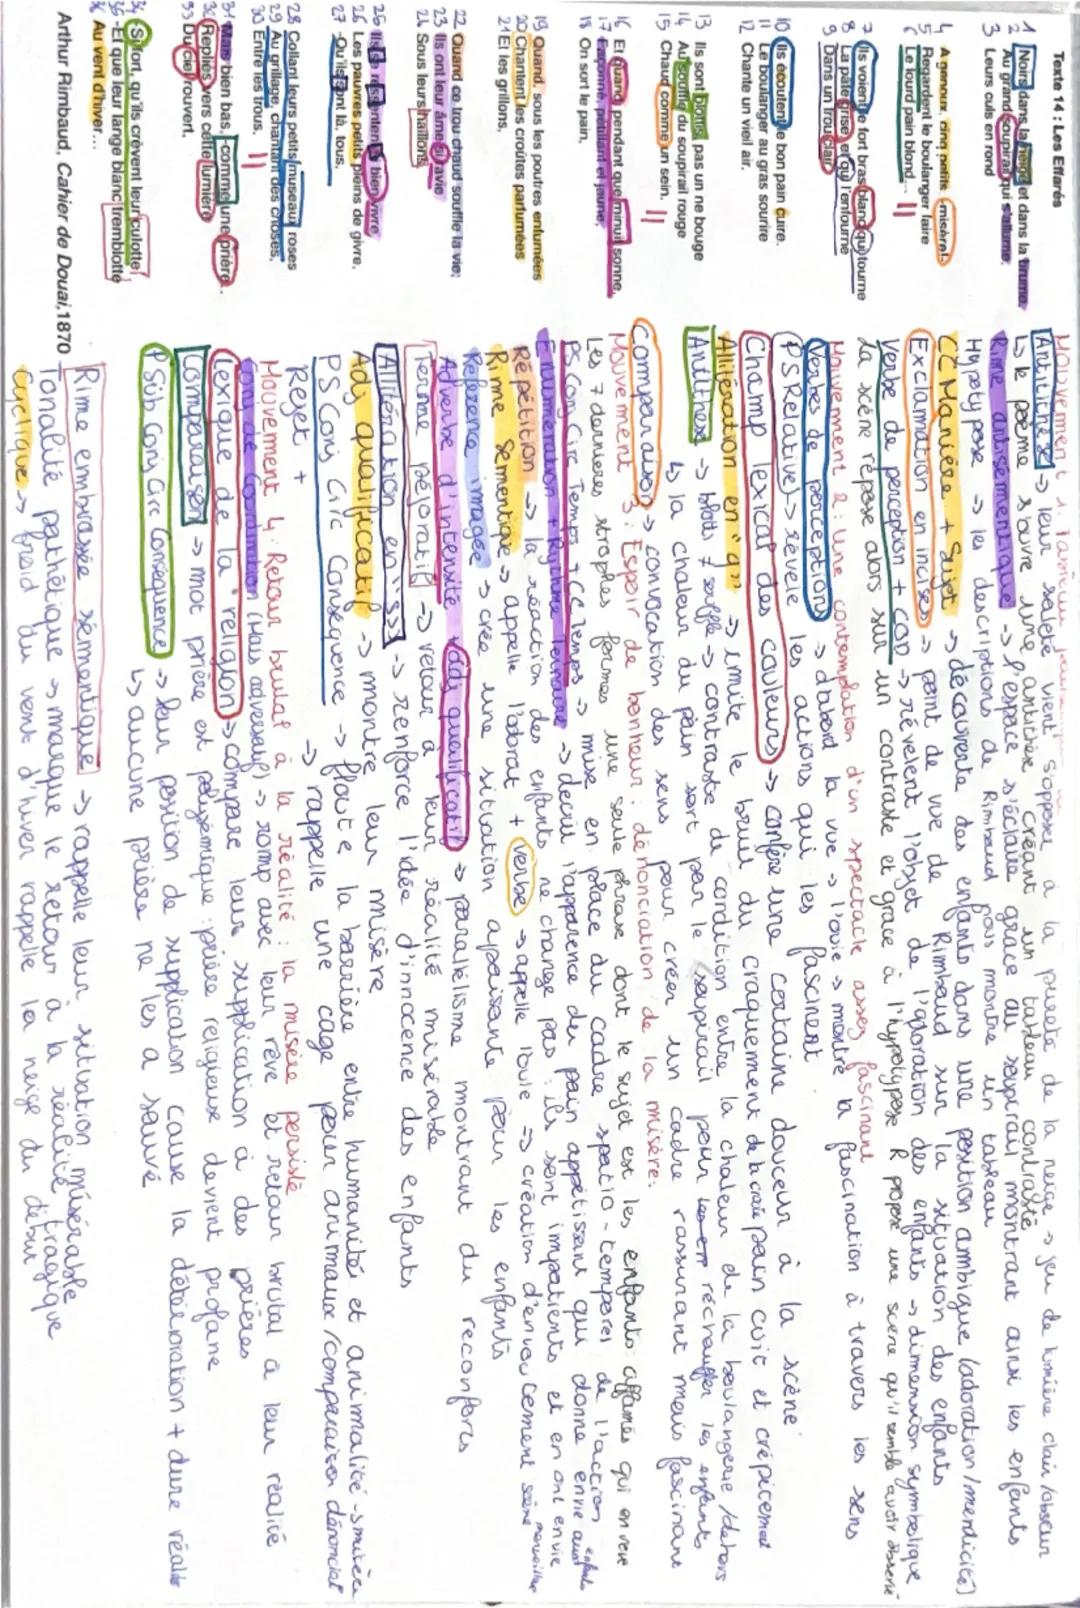 Texte 14 : Les Effarés
1 Noirs dans la neige et dans la brume,
2 Au grand soupirail qui s'allume,
3 Leurs culs en rond
4 A genoux, cinq petits, - misère! -
5 Regardent le boulanger faire
6 Le lourd pain blond...
7 Ils voient le fort bras blanc qui tourne
8 La pâte grise et qui l'enfourne
9 Dans un trou clair.
10 Ils écoutent le bon pain cuire.
11 Le boulanger au gras sourire
12 Chante un vieil air.
13 Ils sont blottis, pas un ne bouge
14 Au souffle du soupirail rouge
15 Chaud comme un sein.
16 Et quand pendant que minuit sonne,
17 Façonné, pétillant et jaune,
18 On sort le pain,
19 Quand, sous les poutres enfumées
20 Chantent les croûtes parfumées
21 Et les grillons,
22 Quand ce trou chaud souffle la vie;
23 Ils ont leur âme si ravie
24 Sous leurs haillons,
25 Ils se ressentent si bien vivre
26 Les pauvres petits pleins de givre,
27 -Qu'ils sont là, tous,
28 Collant leurs petits museaux roses
29 Au grillage, chantant des choses,
30 Entre les trous,
31 Mais bien bas, -comme une prière...
32 Repliés vers cette lumière
33 Du ciel rouvert,
34 -Si fort, qu'ils crèvent leur culotte
35 -Et que leur lange blanc tremblotte
36 Au vent d'hiver...
Arthur Rimbaud, Cahier de Douai, 1870
Mouvement 1 :
Antithèse -> leur saleté vient s'opposer à la pureté de la neige -> jeu de lumière clair/obscur
↳ le poème s'ouvre une antithèse créant un tableau contrasté
Rime antisémentique -> l'espace s'éclaire grâce au soupirail montrant ainsi les enfants
Hypotypose -> les descriptions de Rimbaud pous montre un tableau
CC Manière + Sujet -> découverte des enfants dans une position ambigue (adoration/mendicité)
Exclamation en incises -> point de vue de Rimbaud sur la situation des enfants
Verbe de perception + COD -> révèlent l'objet de l'adoration des enfants -> dimension symbolique
La scène repose alors sur un contraste et grâce à l'hypotypose R propose une scène qu'il semble avoir observé
Mouvement 2 : Une contemplation d'un spectacle assez fascinant
Verbes de perceptions -> d'abord la vue -> l'ouïe -> montre la fascination à travers les sens
(PS Relative) -> révèle les actions qui les fascinent
Champ lexical des couleurs -> confère une certaine douceur à la scène
Allitération en "q" -> imite le bruit du craquement de la croûte pain cuit et crépitement
Antithèse -> blottis ≠ souffle -> contraste de condition entre la chaleur de la boulangerie/dehors
↳ la chaleur du pain sort par le soupirail pour réchauffer les enfants
Comparaison -> convocation des sens pour créer un cadre rassurant mais fascinant
Mouvement 3 : Espoir de bonheur : dénonciation de la misère.
Les 7 dernières strophes formes une seule phrase dont le sujet est les enfants affamés qui en rêve
PS Conj Circ Temps + CC Temps -> mise en place du cadre spatio-temporel de l'action
Enumération + Rythme Ternaire -> décrit l'apparence du pain appétissant qui donne envie aux enfants
Répétition -> la réaction des enfants ne change pas : ils sont impatients et en ont envie
Rime Sémentique -> appelle l'odorat + verbe -> appelle l'ouïe -> création d'envoûtement scène merveilleuse
Référence imagée -> crée une situation apaisante pour les enfants
Adverbe d'intensité + adj qualificatif -> parallélisme montrant du réconfort
Terme péjoratif -> retour à leur réalité misérable
Allitération en "s" -> renforce l'idée d'innocence des enfants
Adj qualificatif -> montre leur misère
PS Conj Circ Conséquence -> floute la barrière entre humanité et animalité
Rejet + -> rappelle une cage pour animaux/comparaison dénonciat
Mouvement 4 : Retour brutal à la réalité : la misère persiste
Conj de Coordination (Mais adversatif) -> romp avec leur rêve et retour brutal à leur réalité
Lexique de la religion -> compare leur supplication à des prières
Comparaison -> mot prière est polysémique : prière religieux devient profane
PSub Conj Circ Conséquence -> leur position de supplication cause la détérioration + dure réalité
↳ aucune prière ne les a sauvé
Rime embrassée sémentique -> rappelle leur situation misérable
Tonalité pathétique -> marque le retour à la réalité tragique
Cyclique -> froid du vent d'hiver rappelle la neige du début